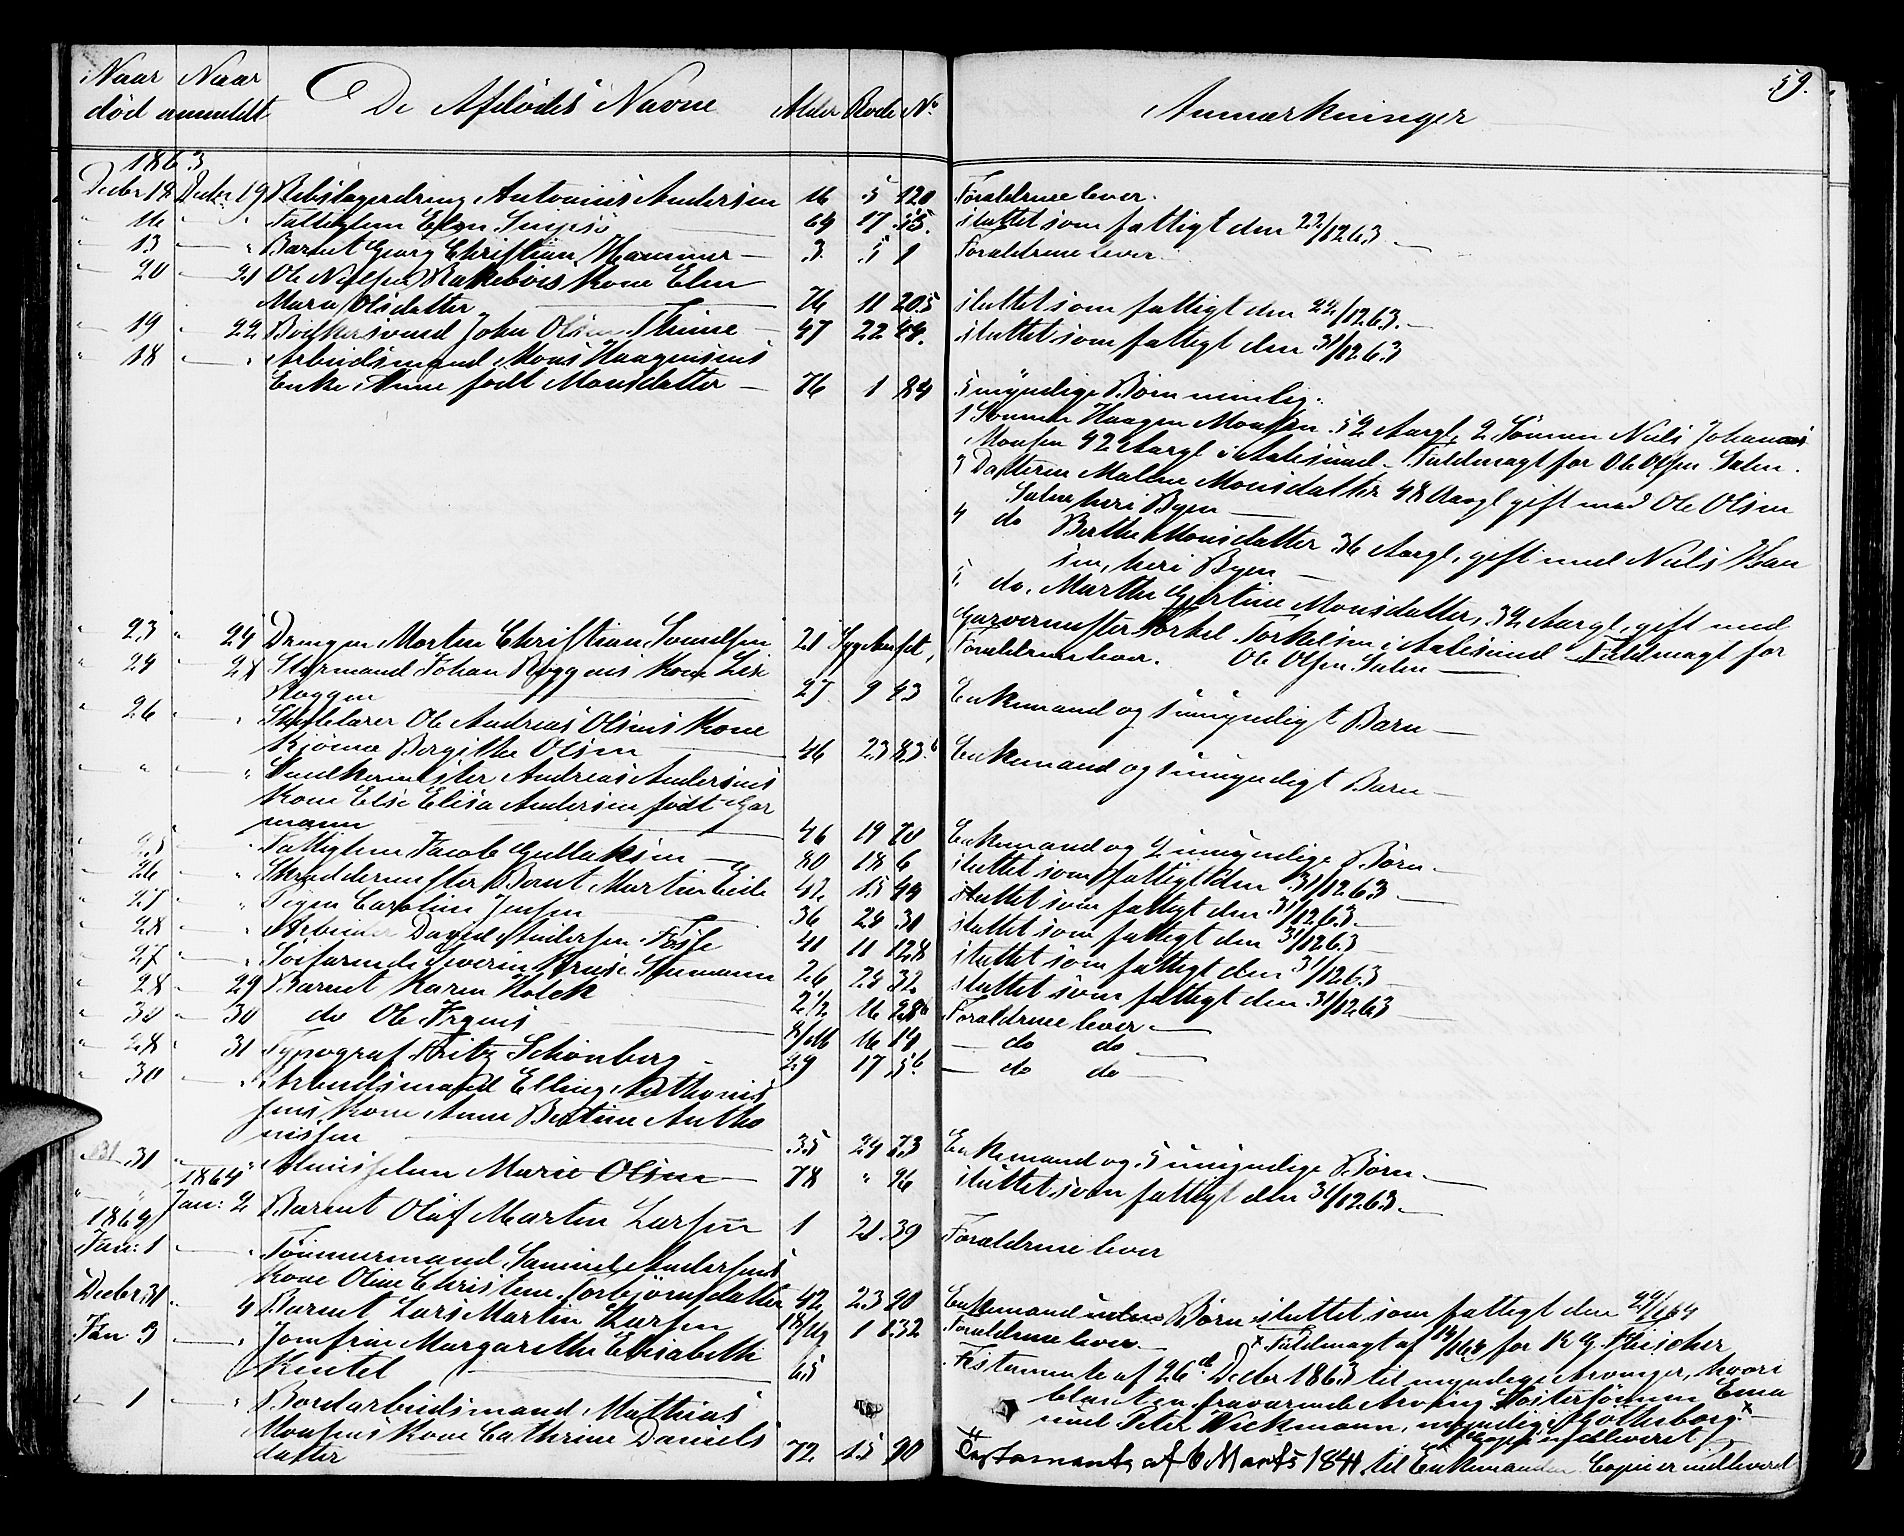 59.
Naar Naar De Afdødes Navne Alder Rode No Anmærkninger
død anmeldt
1863
Decbr 18 Decbr 19 Rebslagerdreng Antonius Andersen 16 5 120 Forældrene lever.
" 16 — " Fattiglem Elen 69 17 sluttet som fattigt den 22/12 63 —
" 13 — " Barnet Georg Christian Hammer — 3 5 1 Forældrene lever.
— 20 — 21 Ole Nielsen Kone Elen
Marie Olsdatter 76 11 205 sluttet som fattigt den 22/12 63. —
— 19 " 22 Bødkersvend John Olsen Thime — 47 22 49. sluttet som fattigt den 31/12 63
" 18 — " Arbeidsmand Mons Haagensens
Enke Anne født Monsdatter — 76 1 84 5 myndige Børn nemlig:
1 Sønnen Haagen Monsen 52 Aargl, 2 Sønnen Niels Johannes
Monsen 42 Aargl i Aalesund — Fuldmagt for Ole Olsen Salen.
3 Datteren Malene Monsdatter 48 Aargl gift med Ole Olsen
Salen, heri Byen —
4 do Berthe Monsdatter 36 Aargl, gift med Niels Han
sen, heri Byen —
5. do. Marthe Gjertine Monsdatter, 32 Aargl, gift med
Garvermester Torkel Torkelsen i Aalesund — Fuldmagt for
Ole Olsen Salen —
" 23 " 24 Drengen Morten Christian 21 Forældrene lever.
— 24 — 28 Styrmand Johan Roggens Kone Lise
Roggen 27 9 43 Enkemand og 1 umyndigt Barn —
" 26 — " Ole Andreas Olsens Kone
Bergithe Olsen 46 23 83b Enkemand og 1 umyndigt Barn —
— " — " Snedkermester Andreas Andersens
Kone Else Elisa Andersen født Gar
mann 46 19 70 Enkemand og 2 umyndige Børn —
" 25 " Fattiglem Jacob Gullaksen — 80 18 6 sluttet som fattigt den 31/12 63 —
" 26 — " Skræddermester Bernt Martin 42 15 49 sluttet som fattigt den 31/12 63 —
— 27 — " Pigen Caroline Jensen 36 24 31 sluttet som fattigt den 31/12 63
— 28 — " Arbeider David Andersen 41 11 128 sluttet som fattigt den 31/12 63 —
— 27 — " Søfarende Severin 26 24 32. sluttet som fattigt den 31/12 63 —
— 28 — 29 Barnet Karen Holck 2 1/2 16 28b Forældrene lever —
" 30 — 30 do Ole 8/M 16 19 — do do —
" 28 " 31 Typograf Fritz Schønberg 29 17 5b — do do —
" 30 — " Arbeidsmand Elling Anthonis
sens Kone Anne Bertine Antho
nissen 35 24 73 Enkemand og 5 umyndige Børn —
31 " Almisselem Marie Olsen — 78 " 96 sluttet som fattigt den 31/12 63 —
1864
" " Jan: 2 Barnet Olaf Martin Larsen 1 21 39 Forældrene lever
1864
Jan: 1 — " Tømmermand Samuel Andersens
Kone Oline Christine Torbjørnsdatter 42 23 90 Enkemand uden Børn sluttet som fattigt den 24/1 64
Decbr 31 " 4 Barnet Lars Martin 18/Ug 1 132 Forældrene lever — x Fuldmagt af 14/1 64 for K G Fleischer
Jan: 3 — " Jomfrue Margarethe Elisabeth
Kintel 65 Testamente af 26de Decbr 1863 til myndige Arvinger, hvori
blant en fraværende Arving Søstersønnen Ema
nuel Peter Wickmann, myndig i Gøtheborg. x —
Copi er indleveret
— 1 — " Bordarbeidsmand Mathias
Monsens Kone Cathrine Daniels
datter 72. 15 90 Testamente af 6 Marts 1841 til Enkemanden. Copi er indleveret